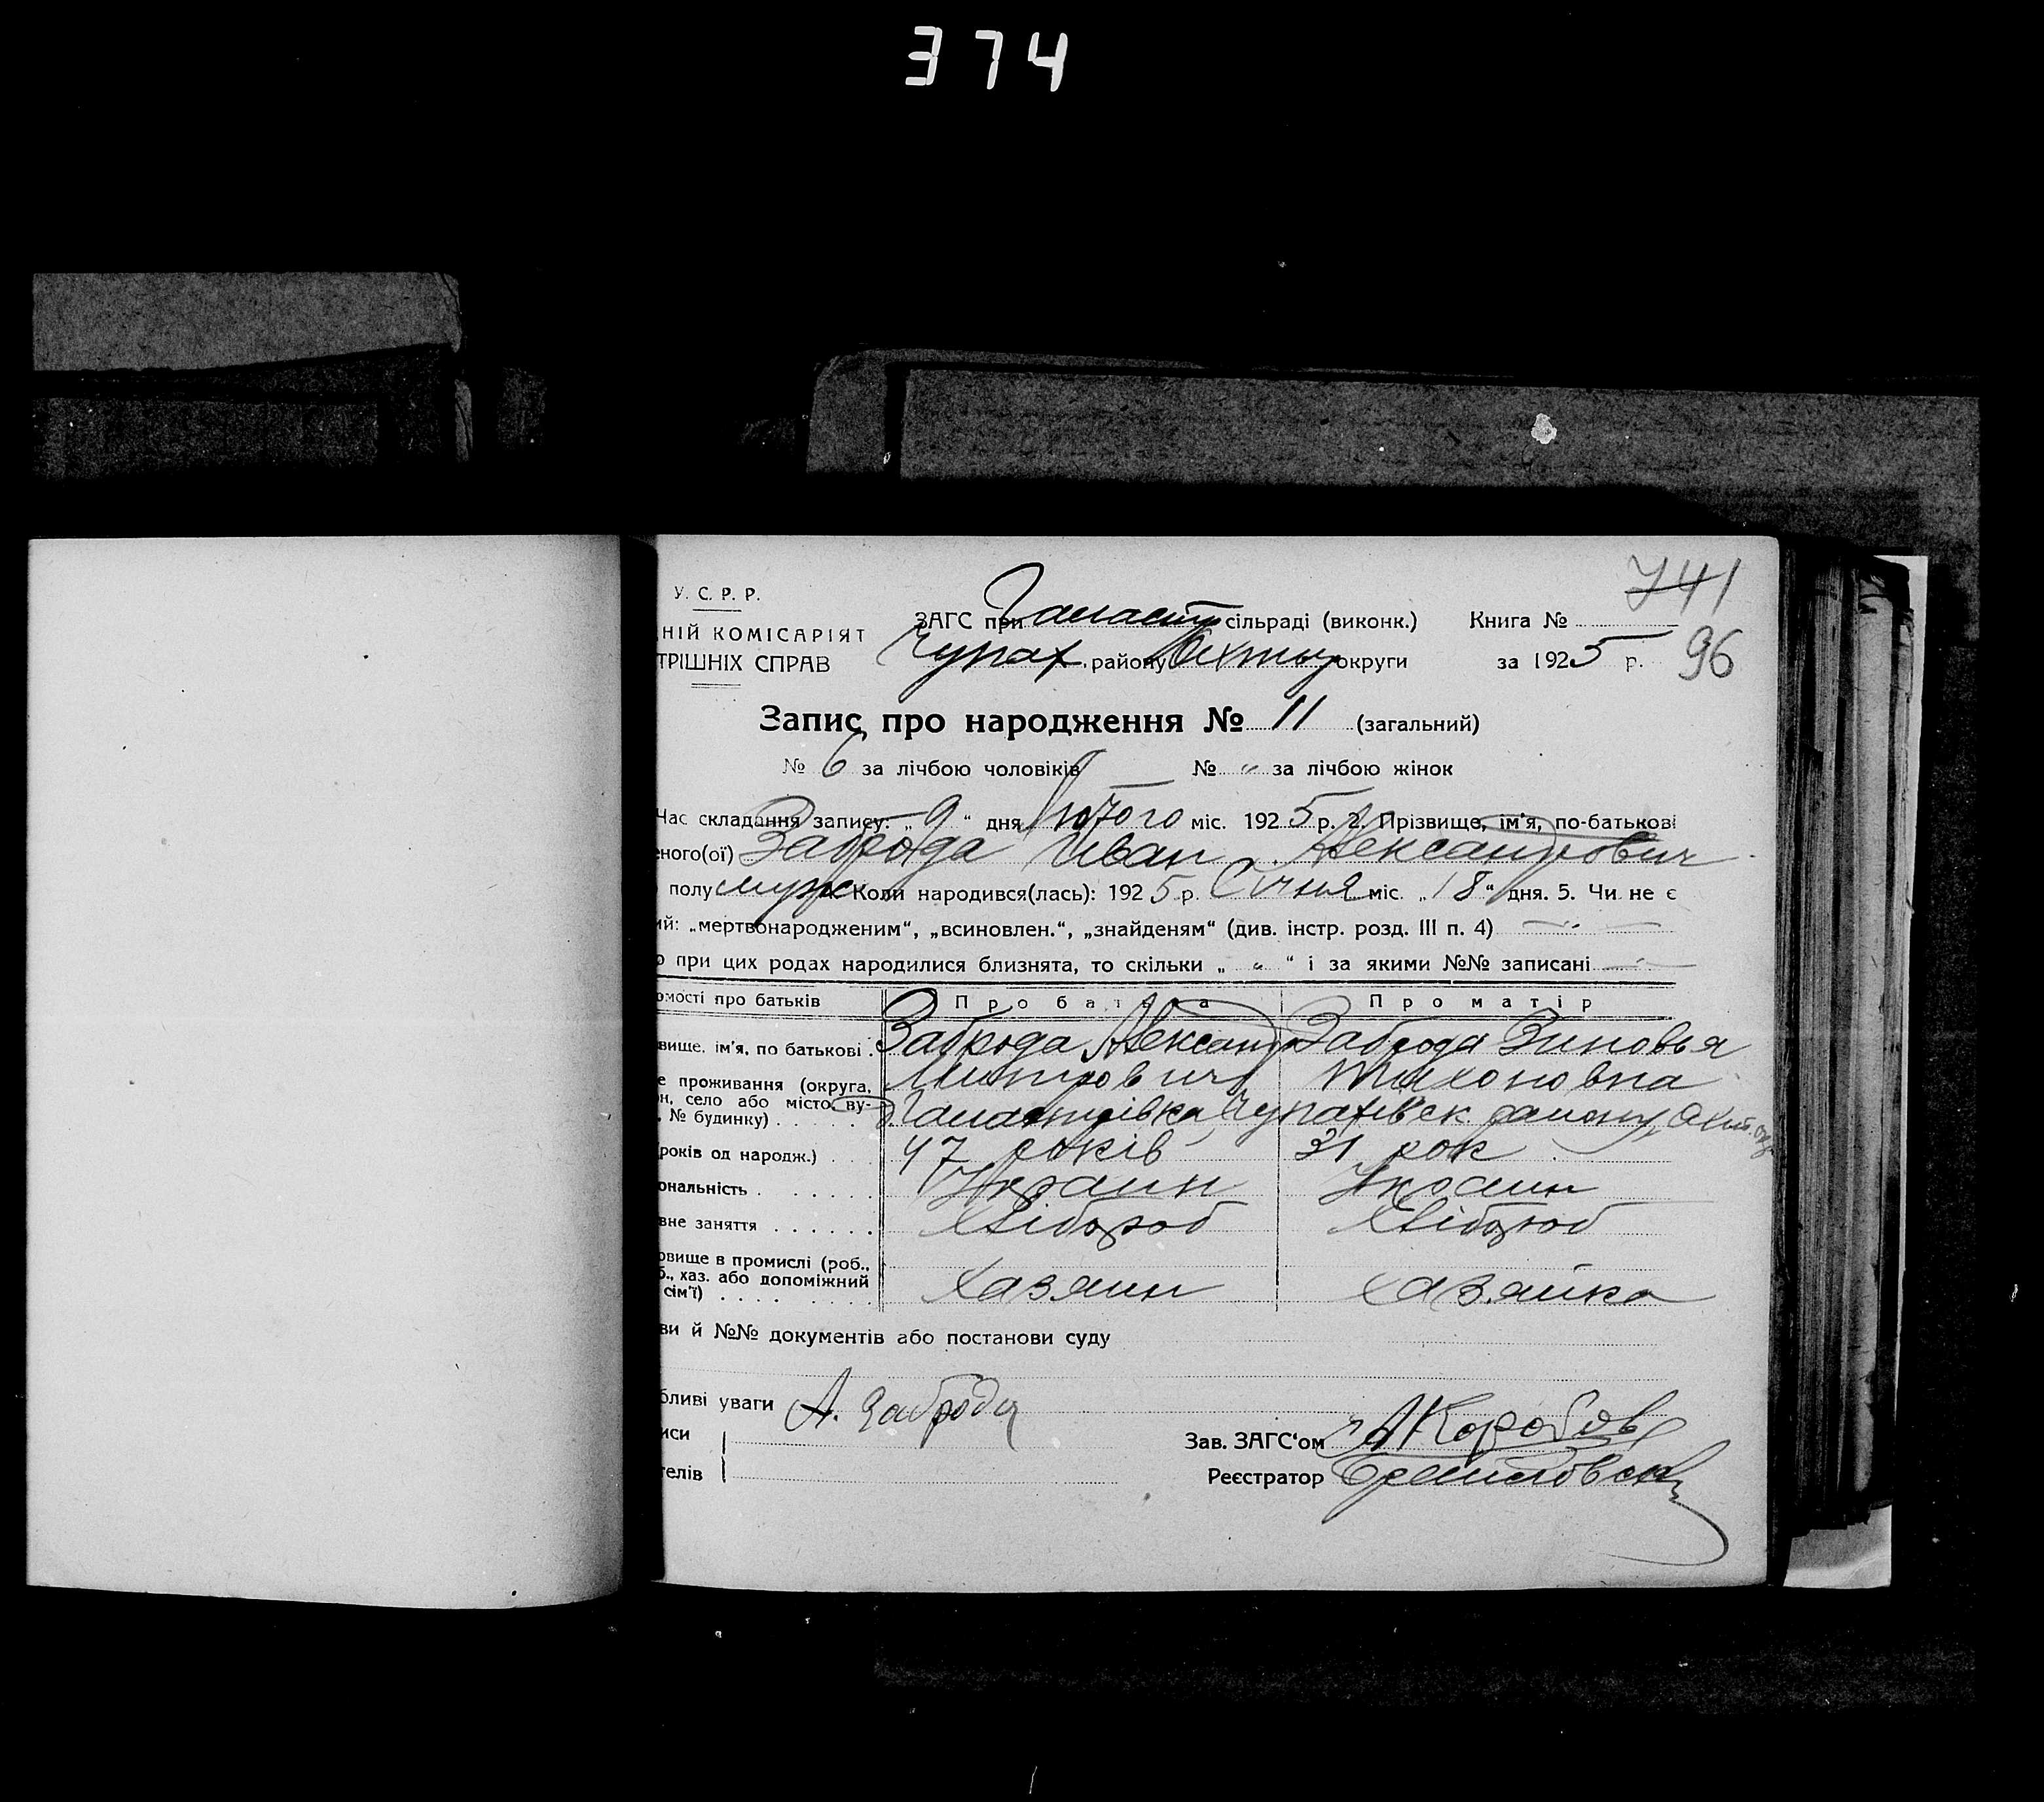 374
741
У. С. Р. Р.
ЗАГС при Галаст сільраді (виконк.) Книга №
НІЙ КОМІСАРІЯТ
ТРІШНІХ СПРАВ
Чупах. району Охтир округи за 1925 р. 96
Запис про народження № 11 (загальний)
№ 6 за лічбою чоловіків № " за лічбою жінок
Час складання запису: „9“ дня Лютого міс. 1925 р. 2. Прізвище, ім'я, по-батькові
ного(ої) Заброда Иван Александрович
полу муж Коли народився(лась): 1925 р. Січня міс. „18“ дня. 5. Чи не є
ий: „мертвонародженим“, „всиновлен.“, „знайденям“ (див. інстр. розд. III п. 4)
о при цих родах народилися близнята, то скільки „ " “ і за якими №№ записані
омості про батьків Про батька Про матір
вище, ім'я, по батькові Заброда Александр Заброда Зиновья
Митрович Тихоновна
е проживання (округа,
н, село або місто, ву-
, № будинку) Галастівка, Чупахівск району, Охт. окр.
років од народж.) 47 років 31 рок
ональність Украин Украин
вне заняття Хлібороб Хлібороб
овище в промислі (роб.,
б., хаз. або допоміжний
сім'ї) Хазяин Хазяйка
ви й №№ документів або постанови суду
бливі уваги А. Заброда
иси Зав. ЗАГС'ом А Коробов
телів Реєстратор